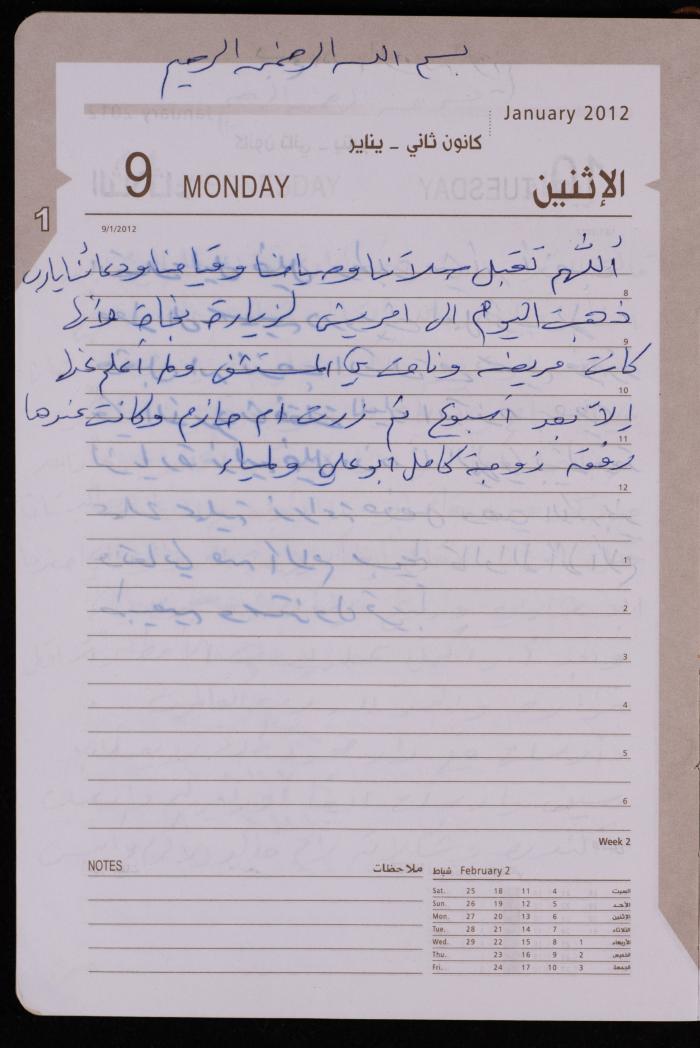 بسم الله الرحمن الرحيم
January 2012
كانون ثاني - يناير
9 MONDAY الإثنين
1
9/1/2012
أللهم تقبل صلاتنا وصيامنا وقيامنا ودعائنا يارب
8
ذهبت اليوم الى امريش لزيارة نجاح لانها
9
كانت مريضه ونامت في المستشفى ولم أعلم عنها
10
إلا بعد أسبوع ثم زرت ام حازم وكانت عندها
11
رفقه زوجة كامل أبو علي ولمياء
12
1
2
3
4
5
6
Week 2
NOTES ملاحظات
شباط February 2
Sat. 25 18 11 4 السبت
Sun. 26 19 12 5 الأحد
Mon. 27 20 13 6 الإثنين
Tue. 28 21 14 7 الثلاثاء
Wed. 29 22 15 8 1 الأربعاء
Thu. 23 16 9 2 الخميس
Fri. 24 17 10 3 الجمعة